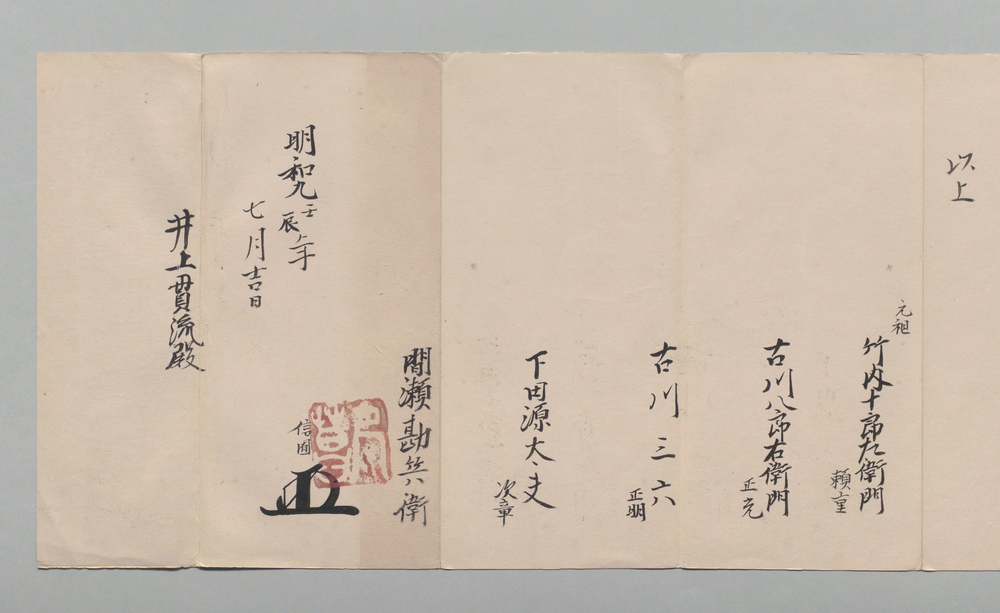 以上
元祖
竹内十郎左衛門
頼重
古川八郎右衛門
正光
古川三六
正明
下田源太夫
次章
間瀬勘兵衛
信圃
明和九壬辰年
七月吉日
井上貫流殿